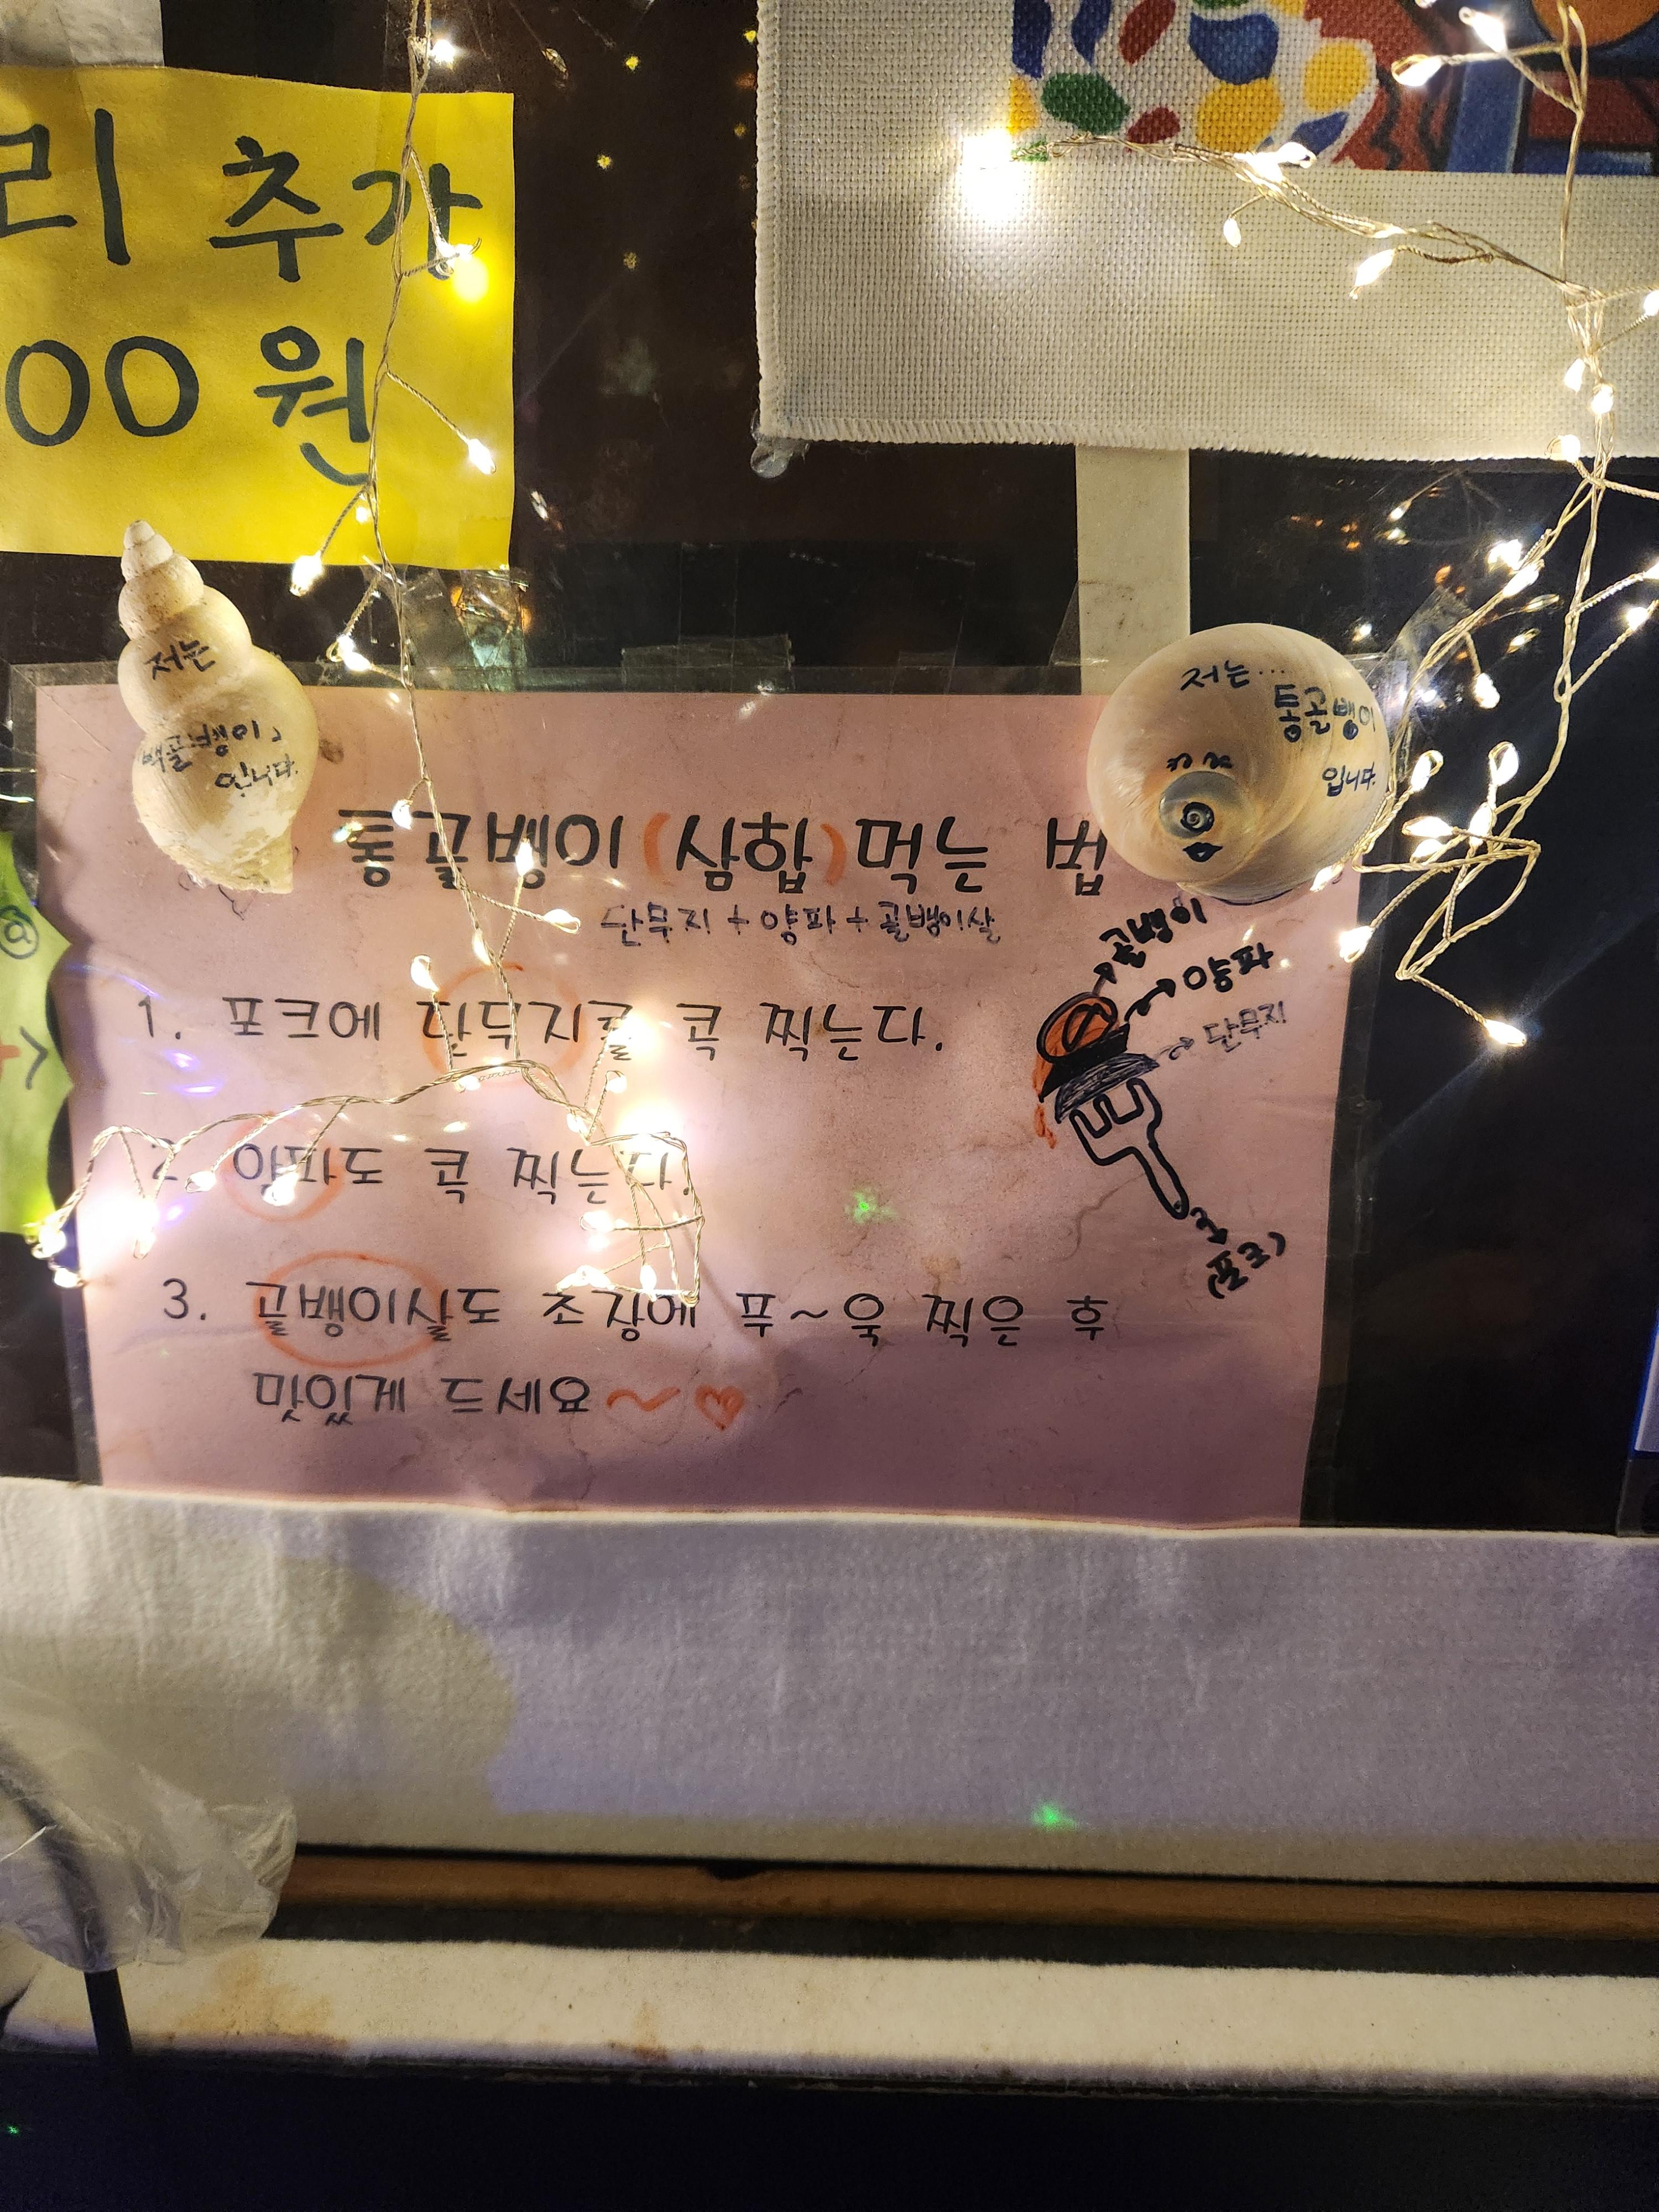 리 추가
00원
저는
백골뱅이
입니다.
저는...
통골뱅이
입니다.
통골뱅이(삼합)먹는 법
단무지 + 양파 + 골뱅이살
1. 포크에 단무지를 콕 찍는다.
2. 양파도 콕 찍는다.
3. 골뱅이살도 초장에 푸~욱 찍은 후
맛있게 드세요~♡
골뱅이
양파
단무지
(포크)